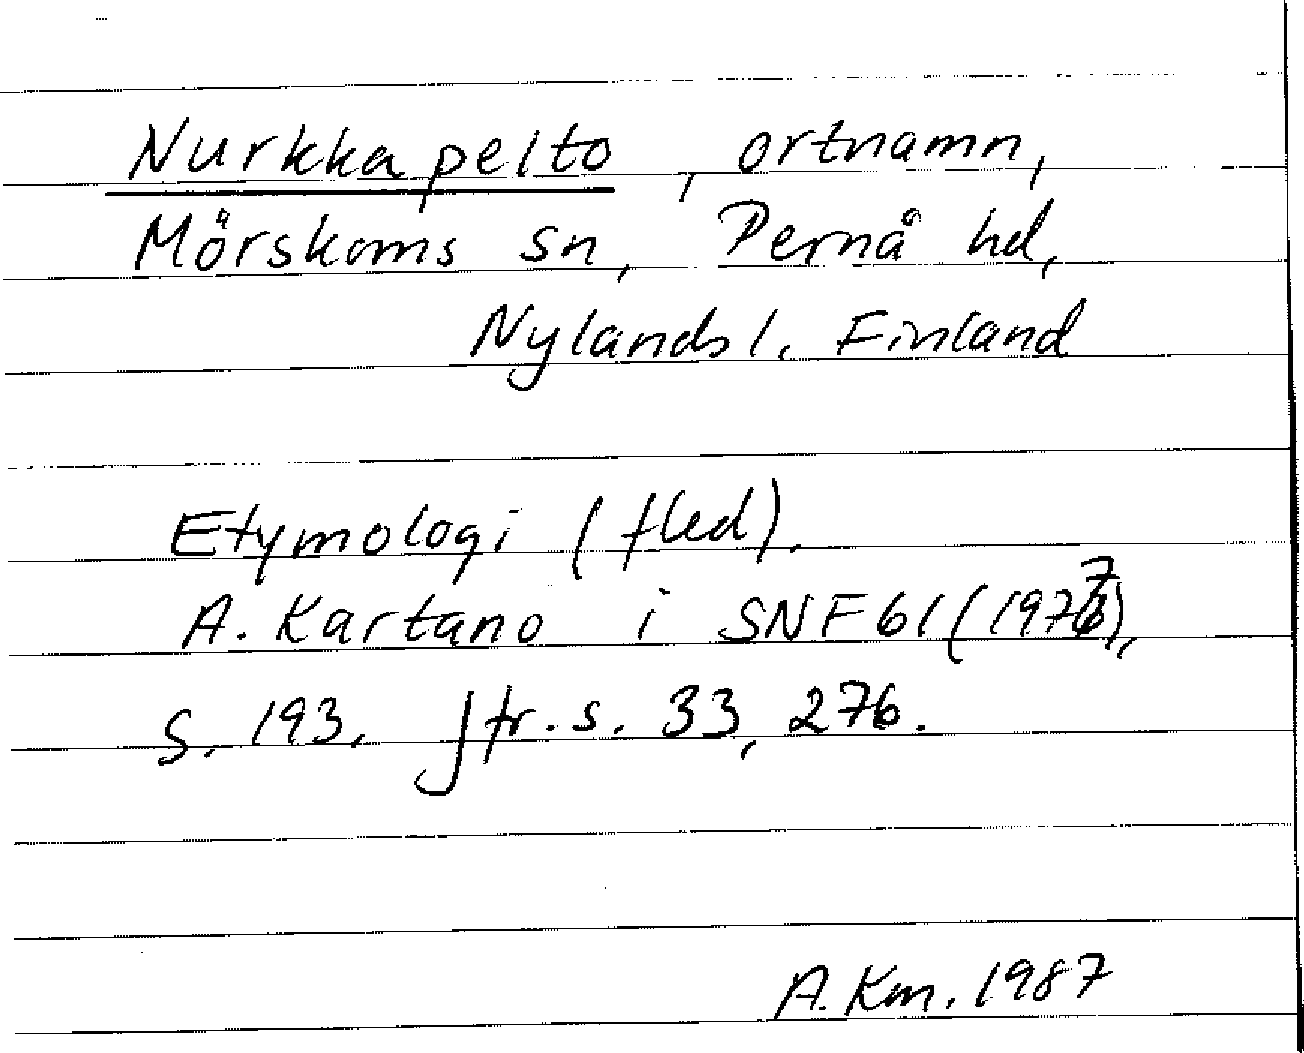 Nurkkapelto, ortnamn,
Mörskoms sn, Pernå hd,
Nylands l. Finland
Etymologi (fled).
A. Kartano i SNF 61 (1977),
s. 193, jfr. s. 33, 276.
A. Km. 1987